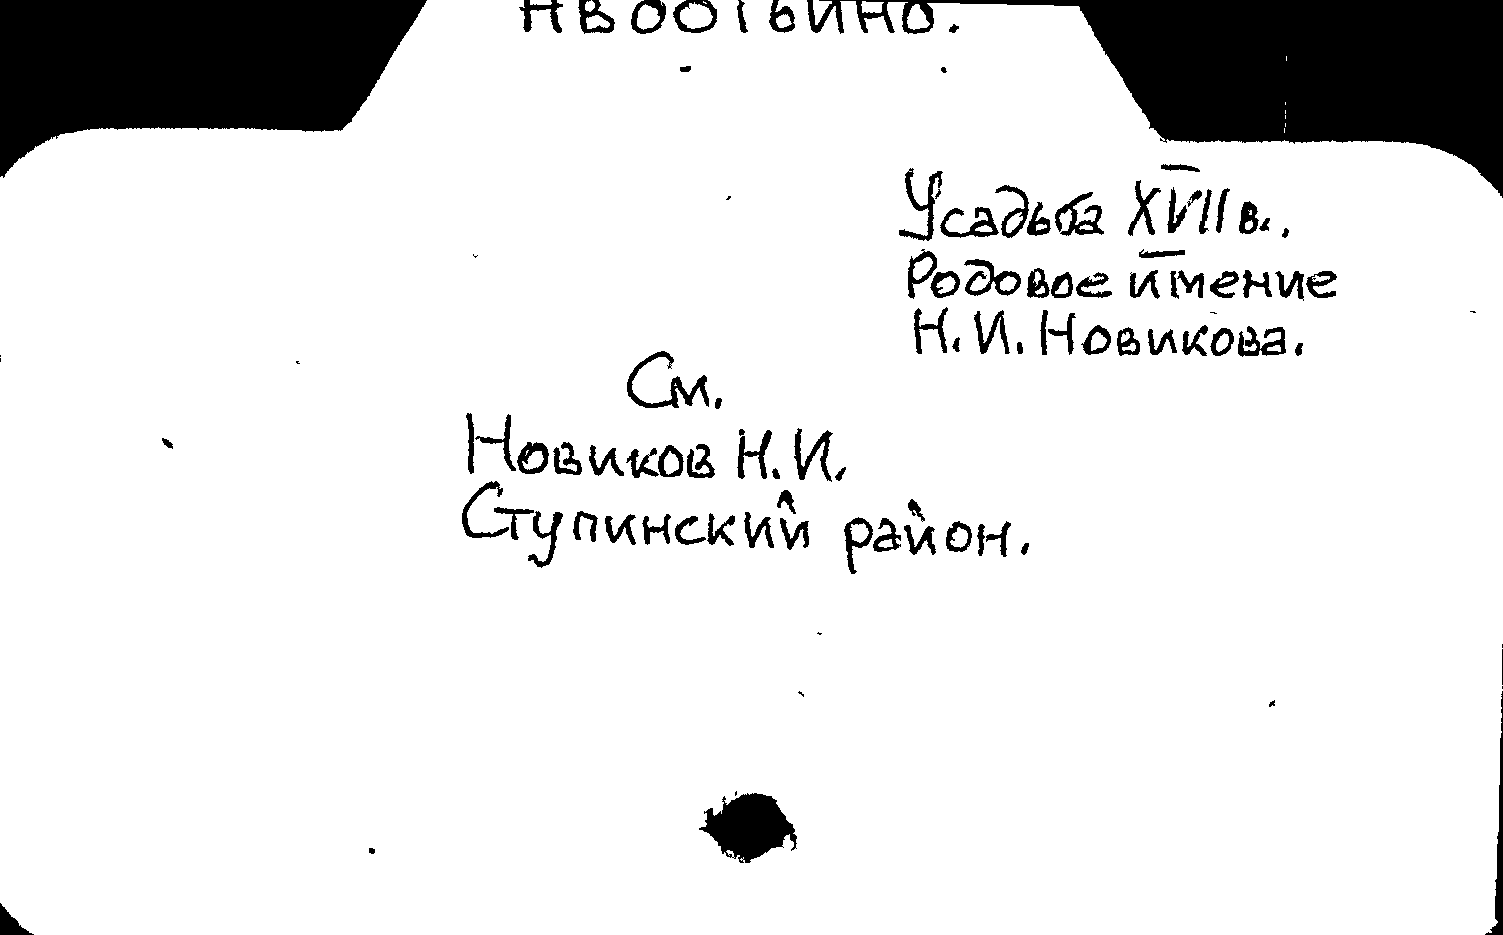 АВДОТЬИНО.
Усадьба XVII в..
Родовое имение
Н. И. Новикова.
См.
Новиков Н. И.
Ступинский район.